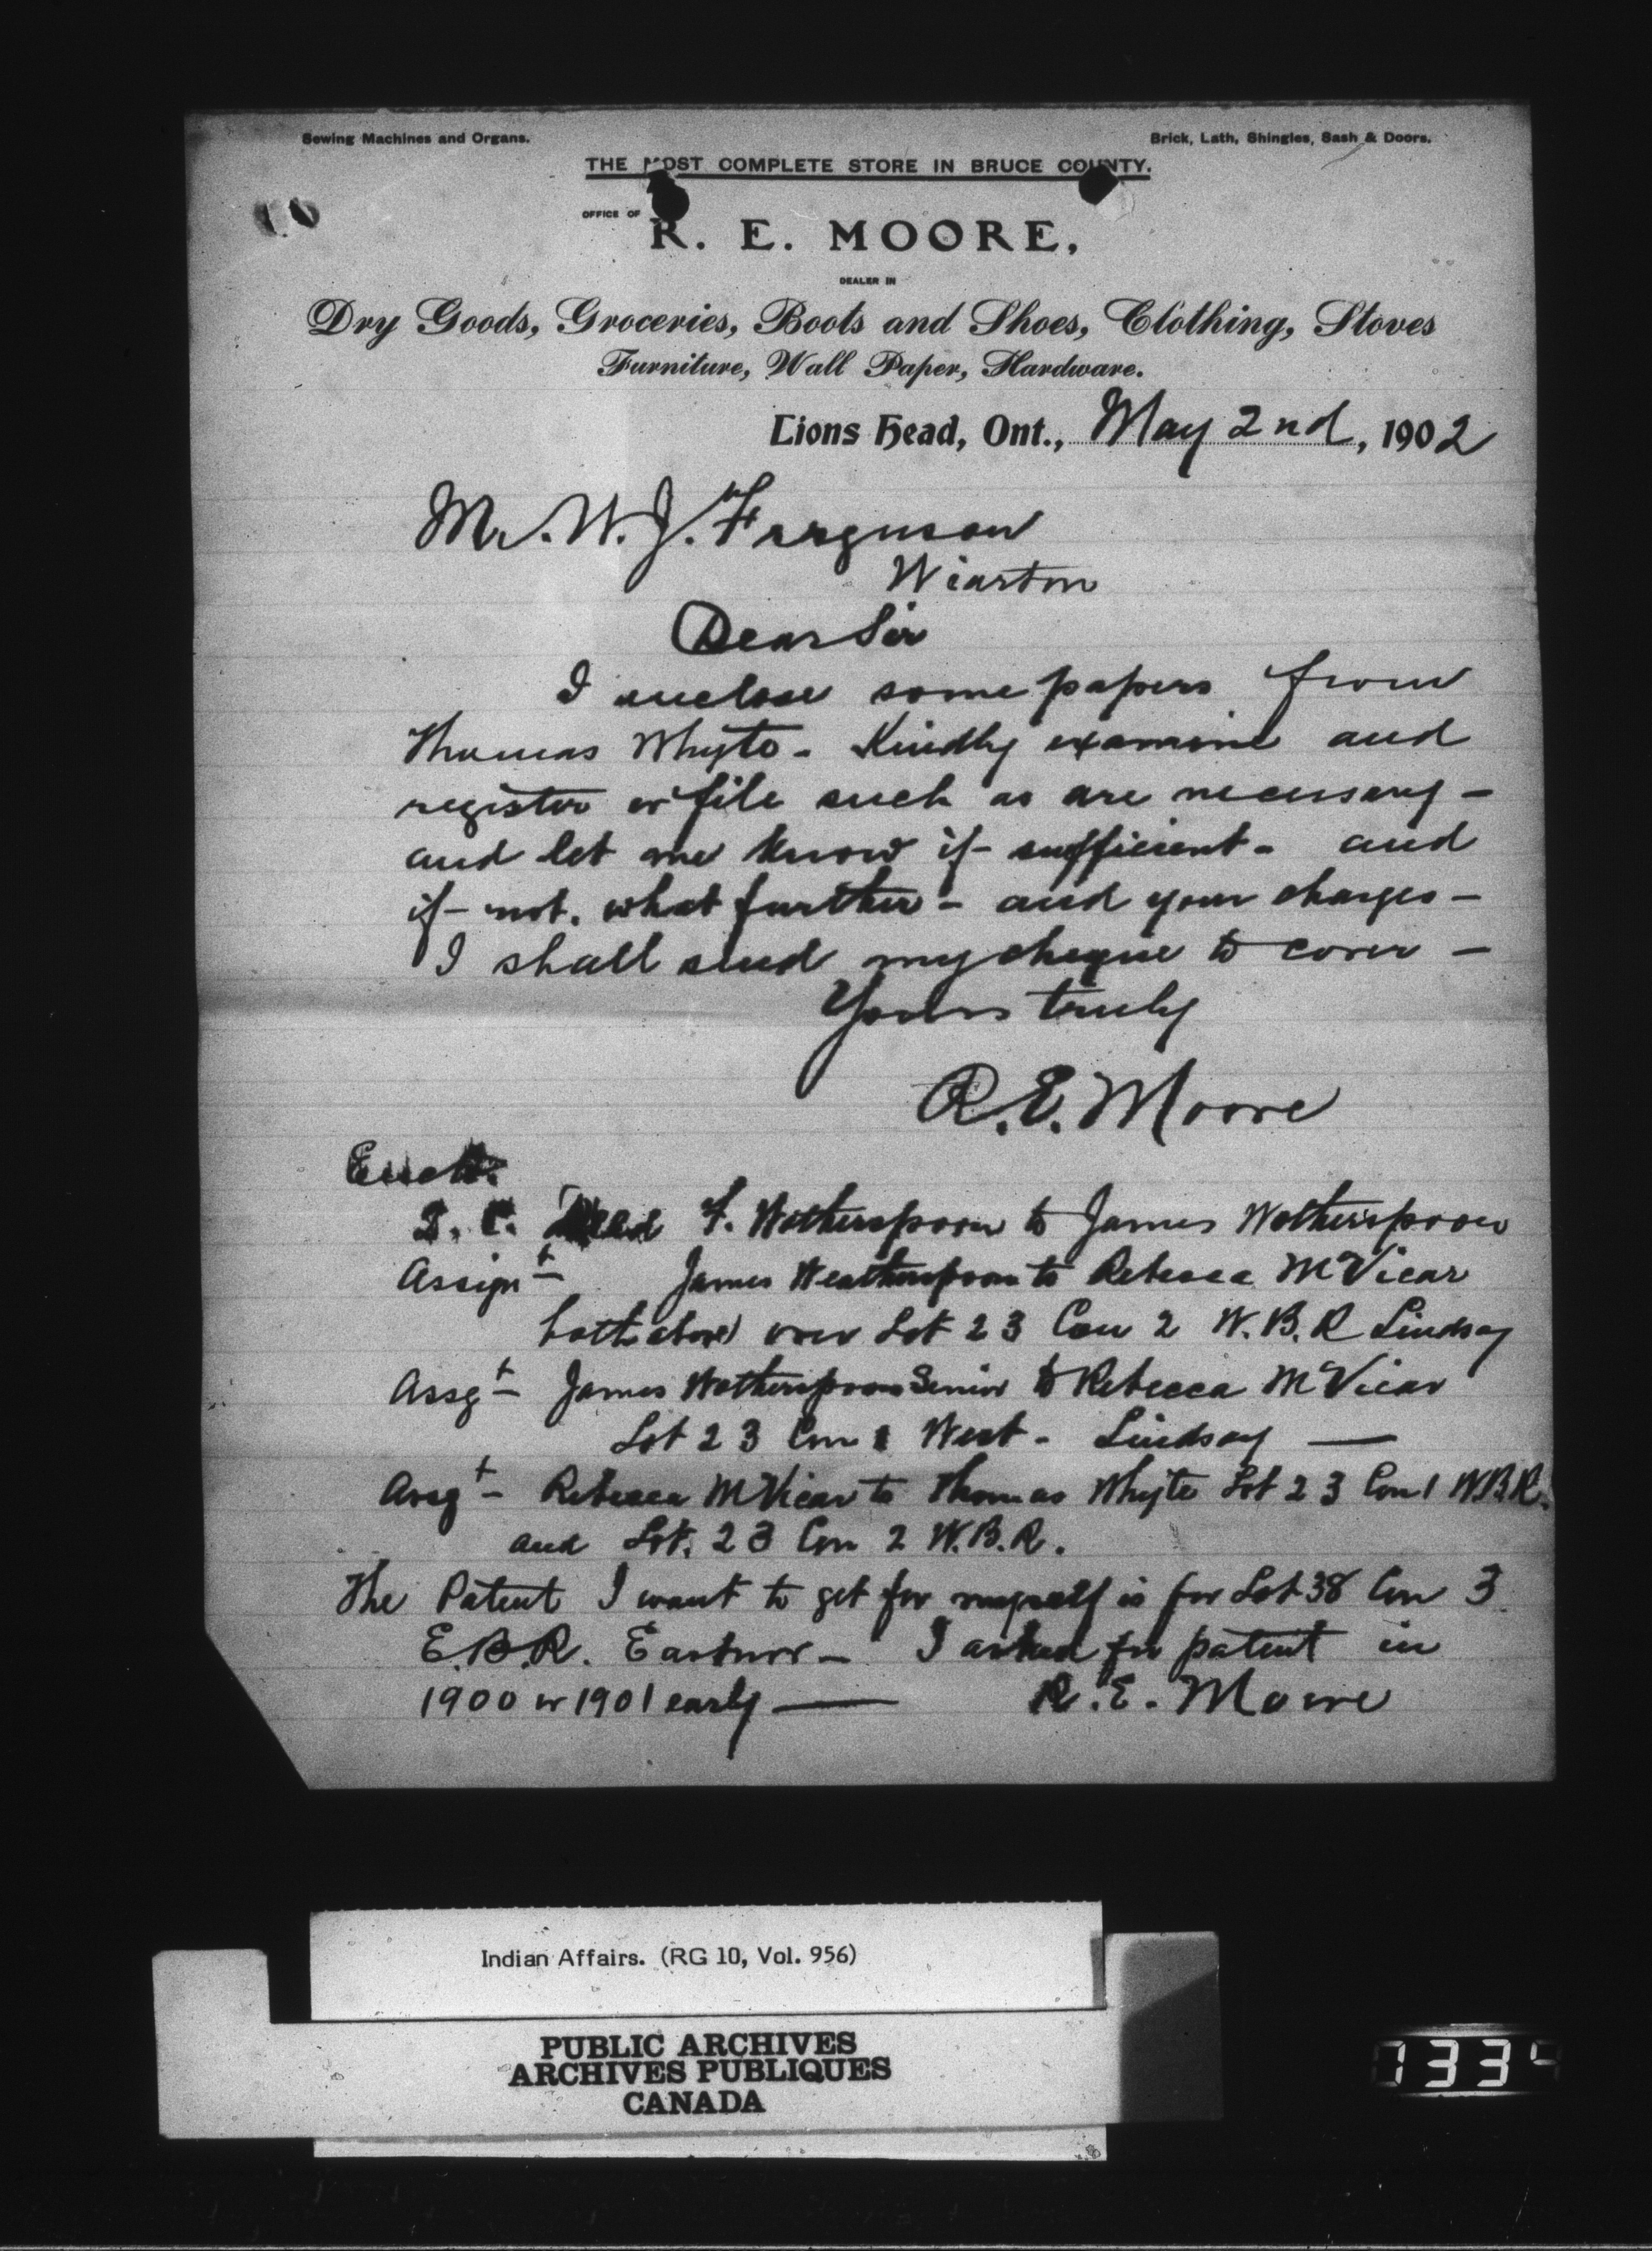 Sewing Machines and Organs.
Brick, Lath, Shingles, Sash & Doors.
THE MOST COMPLETE STORE IN BRUCE COUNTY.
OFFICE OF
R. E. MOORE,
DEALER IN
Dry Goods, Groceries, Boots and Shoes, Clothing, Stoves
Furniture, Wall Paper, Hardware.
Lions Head, Ont., May 2nd, 1902
Mr. W. J. Ferguson
Wiarton
Dear Sir
I enclose some papers from
Thomas Whyte - Kindly examine and
register or file such as are necessary -
and let me know if sufficient - and
if not, what further - and your charges -
I shall send my cheque to cover -
Yours truly
R. E. Moore
Deed F. Wotherspoon to James Wotherspoon
Assignt - James Weatherspoon to Rebecca McVicar
both above over Lot 23 Con 2 W. B. R Lindsay
Assgt - James Wotherspoon Senior to Rebecca McVicar
Lot 23 Con 1 West - Lindsay —
Assgt - Rebecca McVicar to Thomas Whyte Lot 23 Con 1 W.B.R.
and Lot. 23 Con 2 W.B.R.
The Patent I want to get for myself is for Lot 38 Con 3
E.B.R. Eastnor - I asked for patent in
1900 or 1901 early — R. E. Moore
Indian Affairs. (RG 10, Vol. 956)
PUBLIC ARCHIVES
ARCHIVES PUBLIQUES
CANADA
1334